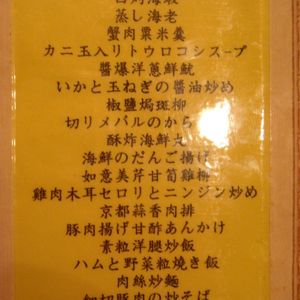 蒸し海老
蟹肉粟米羹
カニ玉入りトウロコシスープ
醬爆洋蔥鮮魷
いかと玉ねぎの醬油炒め
椒鹽焗斑柳
切りメバルのから
酥炸海鮮丸
海鮮のだんご揚げ
如意美芹甘筍雞柳
雞肉木耳セロリとニンジン炒め
京都蒜香肉排
豚肉揚げ甘酢あんかけ
素粒洋腿炒飯
ハムと野菜粒焼き飯
肉絲炒麵
細切豚肉の炒そば